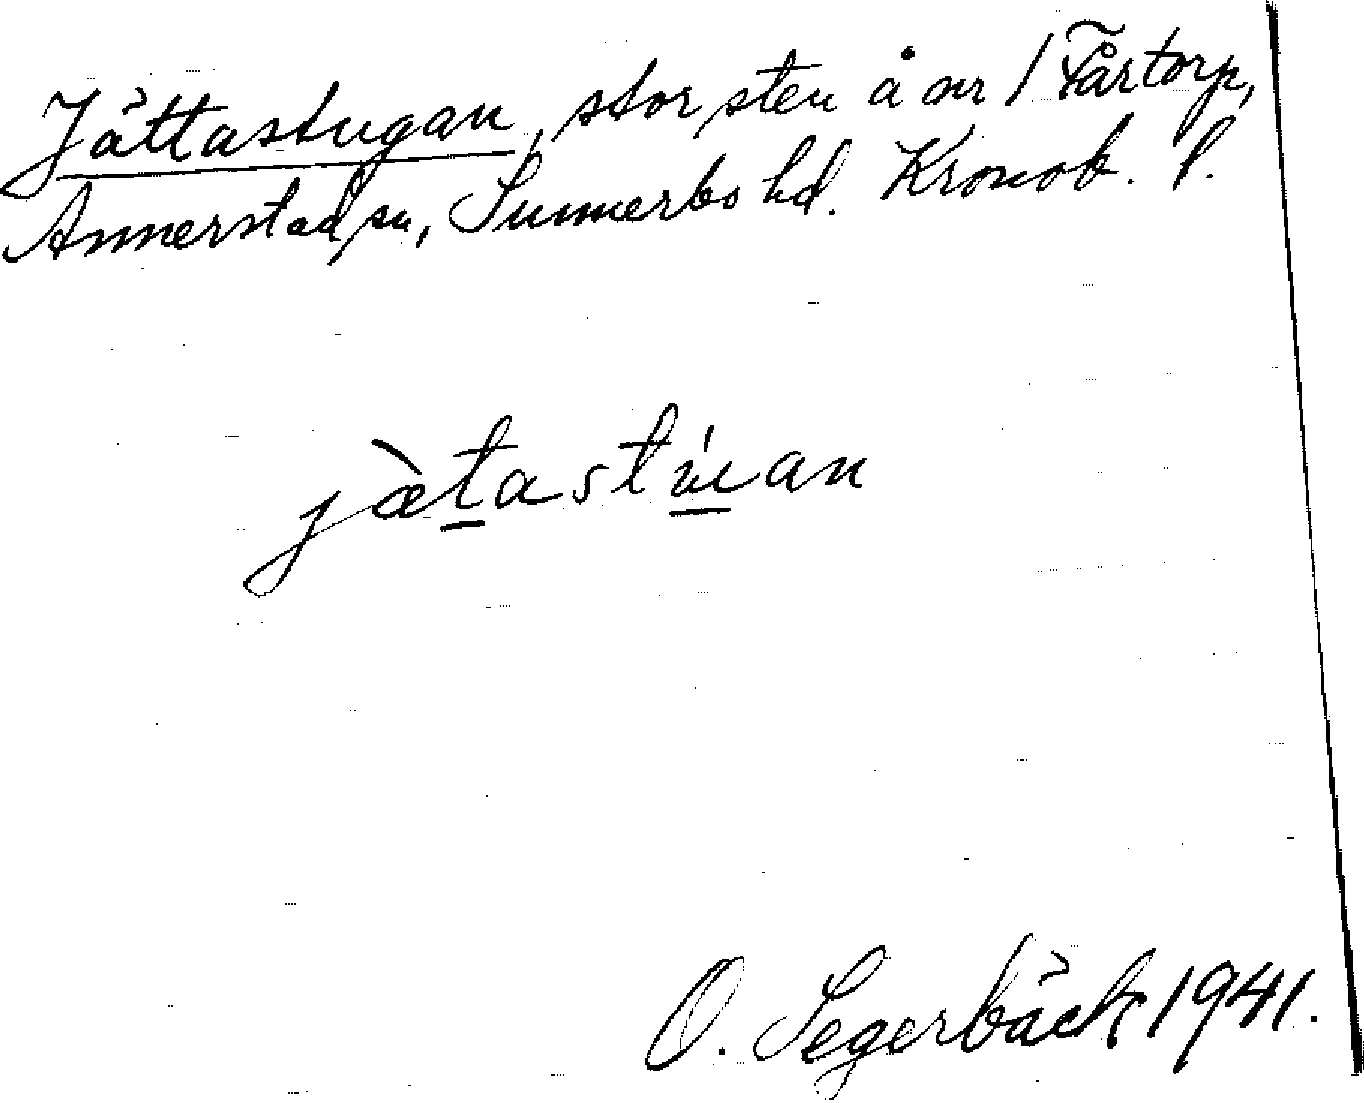 Jättastugan, stor sten å nr 1 Fårtorp,
Annerstad sn, Sunnerbo hd. Kronob. l.
jàtastúan
O. Segerbäck 1941.